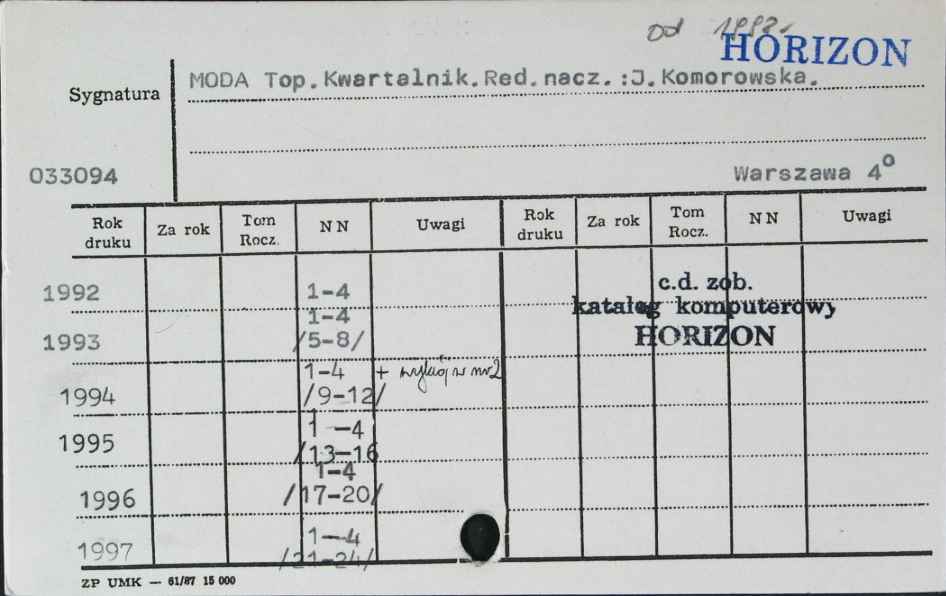 od 1992r.
HORIZON
Sygnatura
MODA Top.Kwartalnik.Red.nacz.:J.Komorowska.
033094
Warszawa 4°
Rok druku Za rok Tom Rocz. NN Uwagi Rok druku Za rok Tom Rocz. NN Uwagi
1992 1-4
c.d. zob.
katalog komputerowy
HORIZON
1993 1-4
/5-8/
1994 1-4 + w nr 2
/9-12/
1995 1-4
/13-16
1996 1-4
/17-20/
1997 1-4
/21-24/
ZP UMK — 61/87 15 000